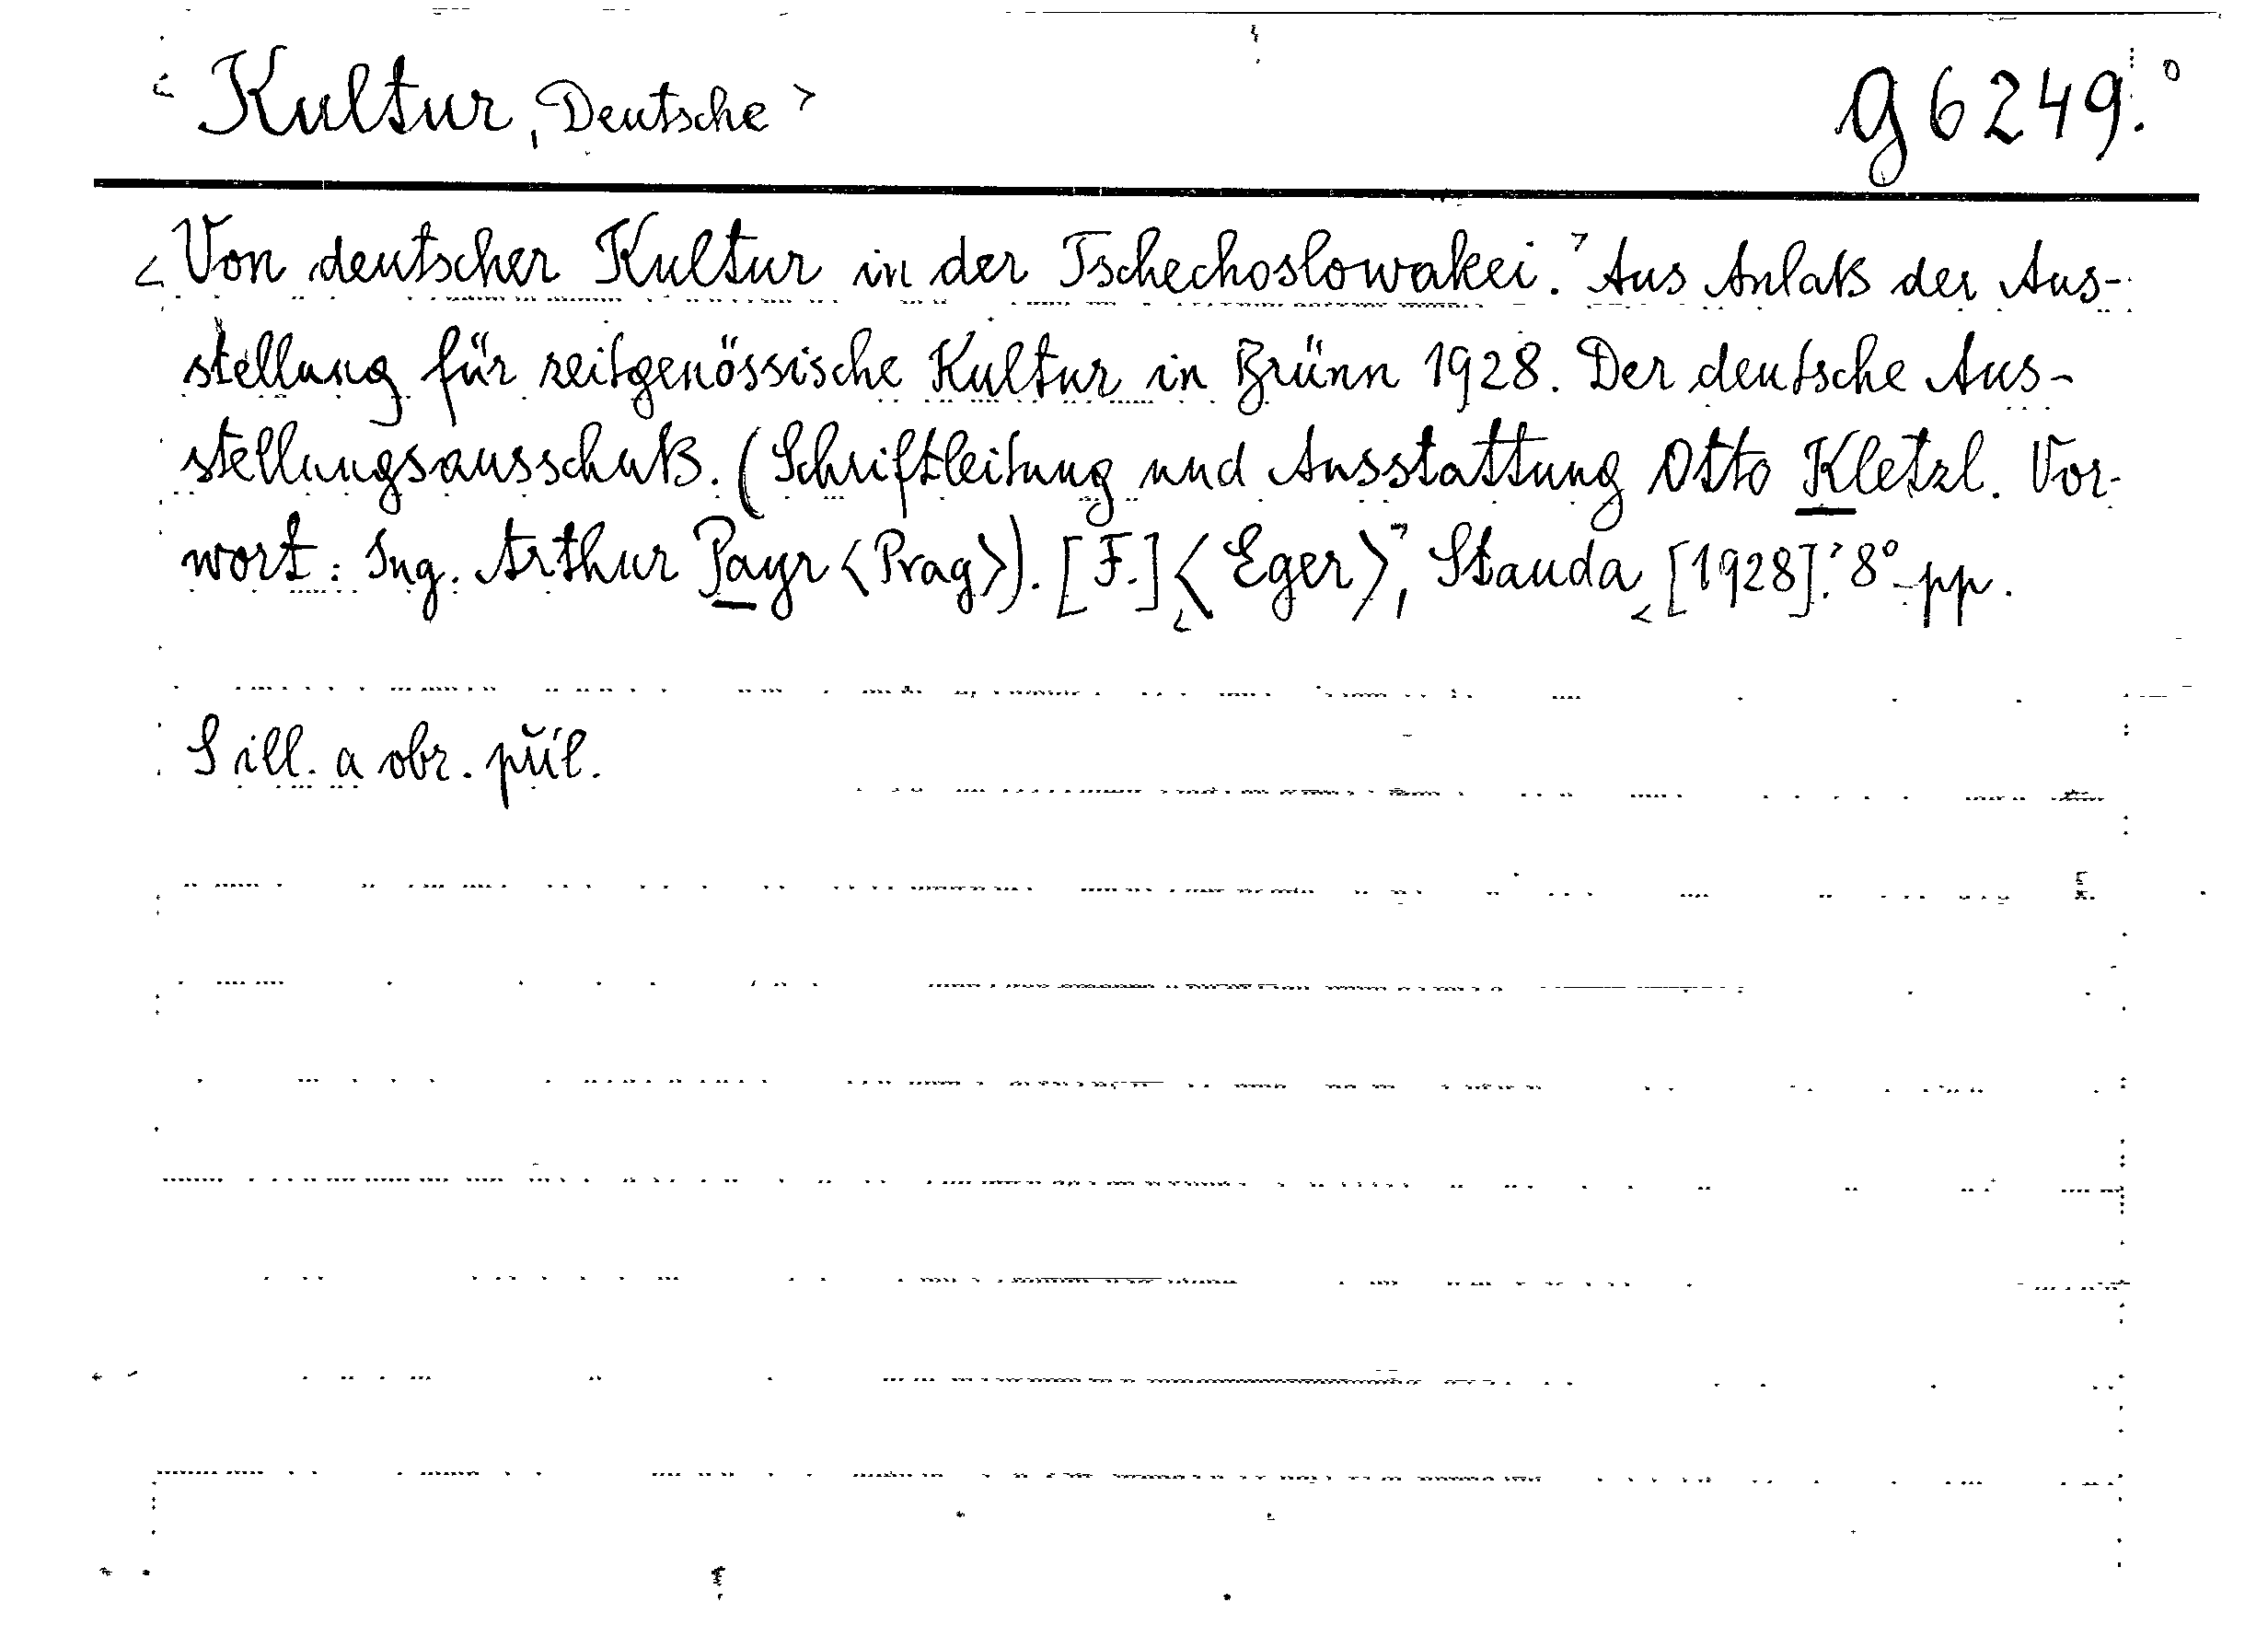 < Kultur, Deutsche > g 6249.°
< Von deutscher Kultur in der Tschechoslowakei. > Aus Anlaß der Aus-
stellung für zeitgenössische Kultur in Brünn 1928. Der deutsche Aus-
stellungsausschuß. (Schriftleitung und Ausstattung Otto Kletzl. Vor-
wort: Ing. Arthur Payr <Prag>). [F.] <Eger>, Stauda, [1928]. 8° pp.
S ill. a obr. příl.